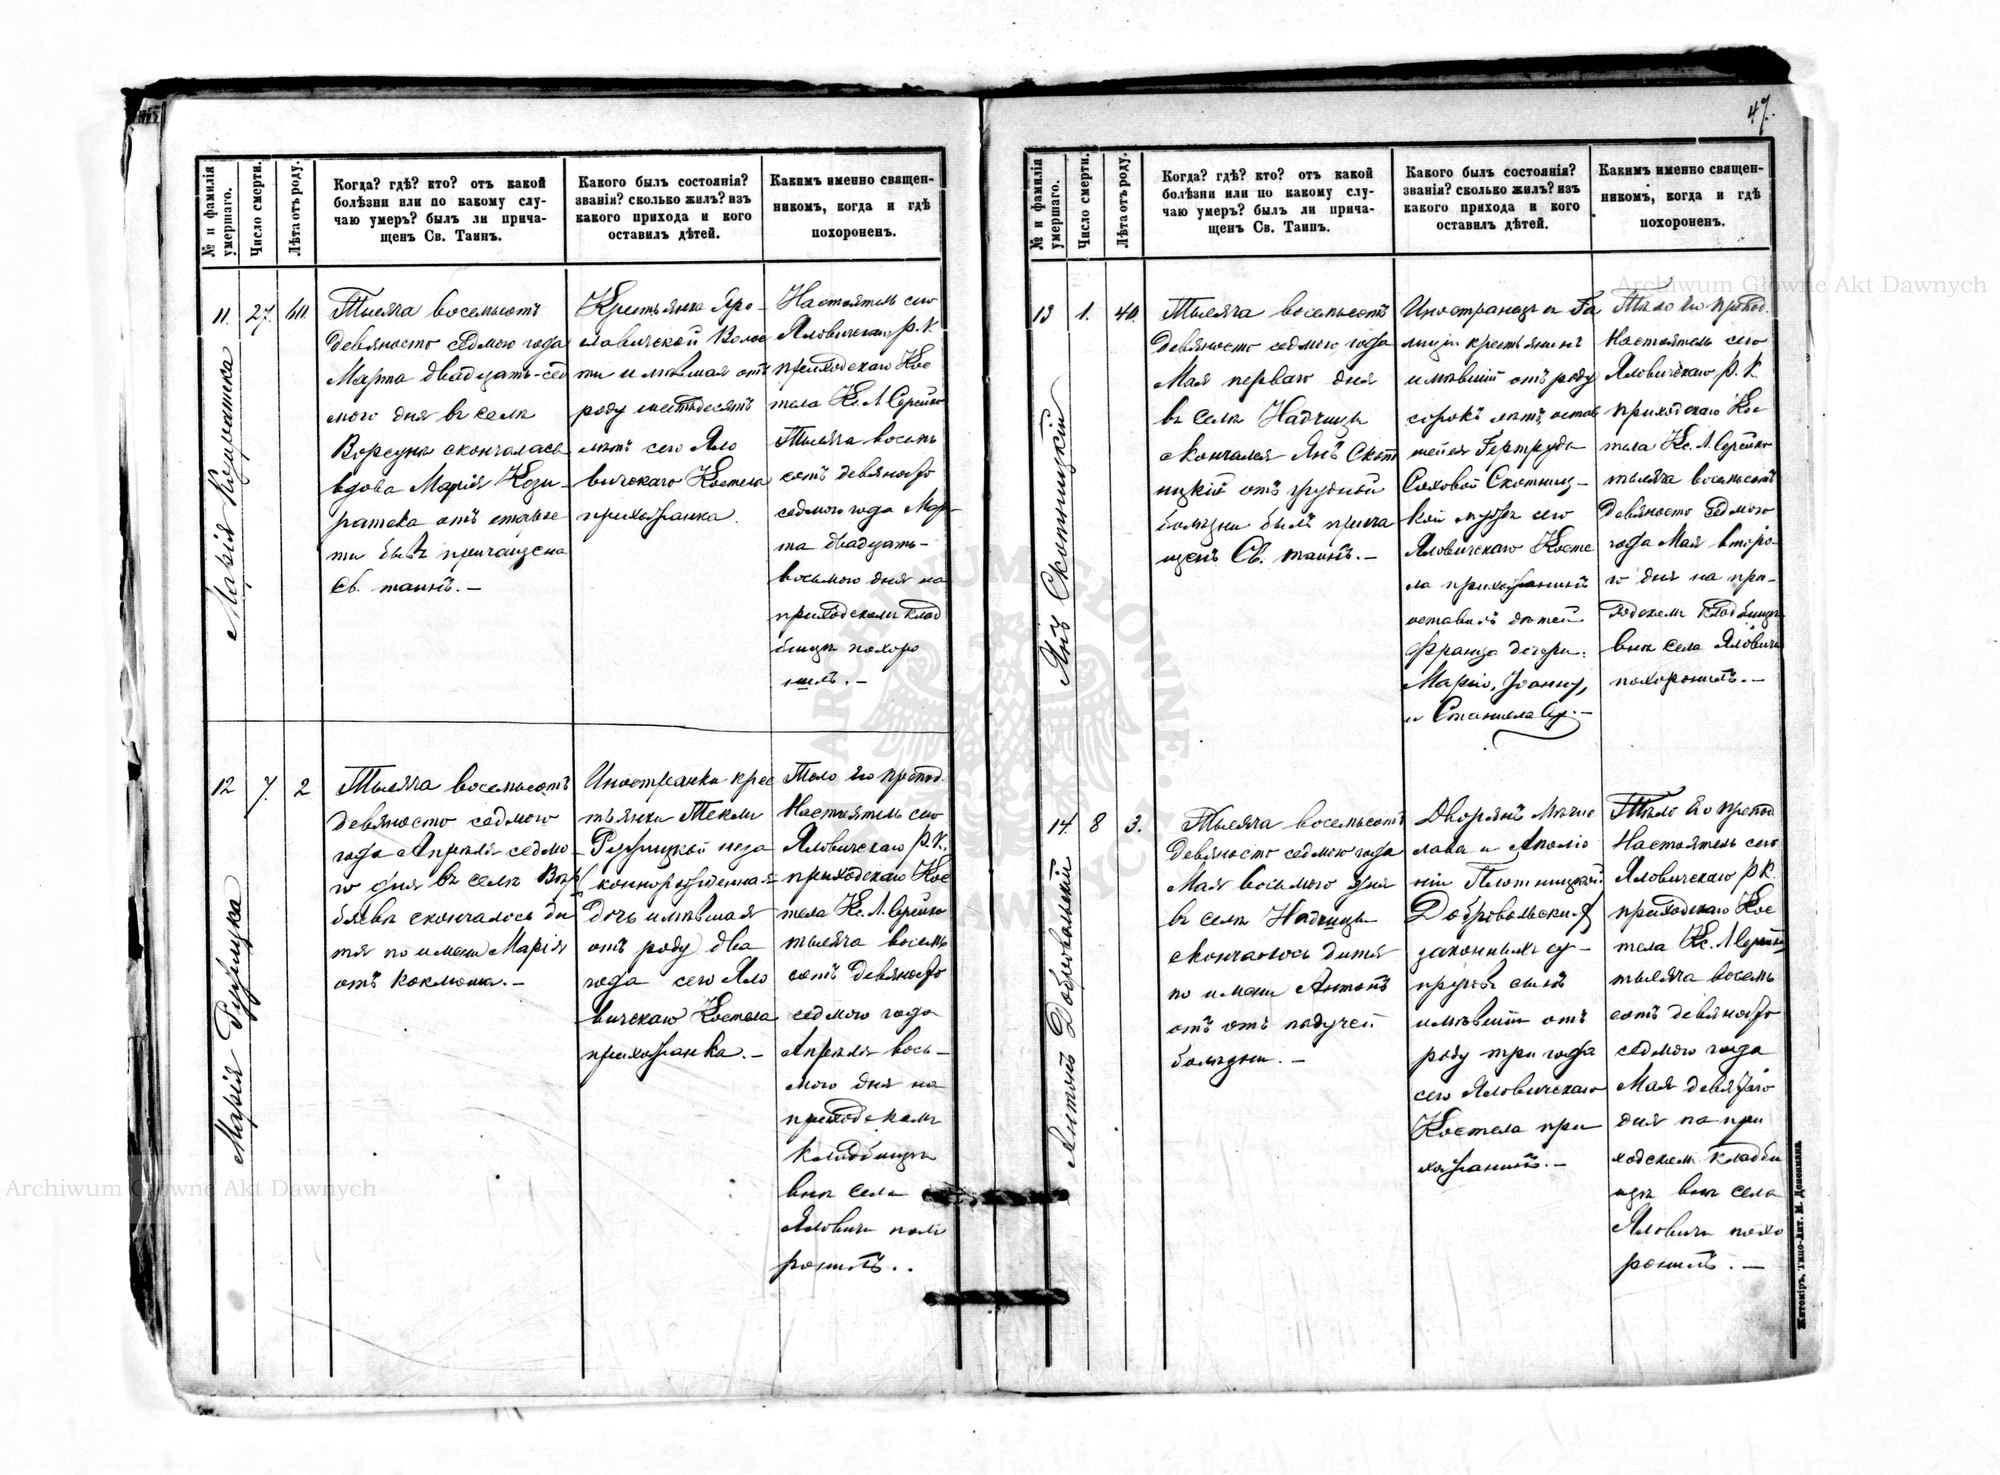 47.
№ и фамилія умершаго.
Число смерти.
Лѣта отъ роду.
Когда? гдѣ? кто? отъ какой
болѣзни или по какому слу-
чаю умеръ? былъ ли прича-
щенъ Св. Таинъ.
Какого былъ состоянія?
званія? сколько жилъ? изъ
какого прихода и кого
оставилъ дѣтей.
Какимъ именно священ-
никомъ, когда и гдѣ
похороненъ.
11.
Марія
27.
60.
Тысяча восемьсотъ
девяносто седмого года
Марта двадцать-сед
мого дня въ селѣ
скончалась
вдова Марія Кози-
ратска отъ старос
ти бывъ причащена
Св. таинъ. –
Крестьянка Яро-
славичской Волос
ти имѣвшая отъ
роду шестьдесятъ
лѣтъ сего Яло
вичскаго Костела
прихожанка.
Настоятель сего
Яловичскаго Р. К.
приходскаго Кос
тела Кс. Л.
Тысяча восемь
сотъ девяносто
седмого года Мар-
та двадцать-
восьмого дня на
приходскомъ клад
бищѣ похоро
нилъ. –
12
Марія
7.
2
Тысяча восемьсотъ
девяносто седмого
года Апрѣля седмо-
го дня въ селѣ
скончалось ди
тя по имени Марія
отъ коклюша. –
Иностранки крес
тьянки Текли
неза
коннорожденная
дочь имѣвшая
отъ роду два
года сего Яло
вичскаго Костела
прихожанка. –
Тѣло его препод.
Настоятель сего
Яловичскаго Р. К.
приходскаго Кос
тела Кс. Л.
тысяча восемь
сотъ девяносто
седмого года
Апрѣля вось-
мого дня на
приходскомъ
кладбищѣ
внѣ села
Яловичи похо
ронилъ. .
№ и фамилія умершаго.
Число смерти.
Лѣта отъ роду.
Когда? гдѣ? кто? отъ какой
болѣзни или по какому слу-
чаю умеръ? былъ ли прича-
щенъ Св. Таинъ.
Какого былъ состоянія?
званія? сколько жилъ? изъ
какого прихода и кого
оставилъ дѣтей.
Какимъ именно священ-
никомъ, когда и гдѣ
похороненъ.
13
Янъ Скотницкій
1.
40.
Тысяча восемьсотъ
девяносто седмого года
Мая перваго дня
въ селѣ Надчицы
скончался Янъ Скот
ницкій отъ грудной
болѣзни былъ прича
щенъ Св. таинъ. –
Иностранецъ въ Га
лиціи крестьянинъ
имѣвшій отъ роду
сорокъ лѣтъ, остав
шейся Гертруды
Скотниц-
кой мужъ сего
Яловичскаго Косте
ла прихожанинъ
оставилъ дѣтей
Франца дочери:
Марію, Іоанну,
и Станиславу. –
Тѣло его препод.
Настоятель сего
Яловичскаго Р. К.
приходскаго Кос
тела Кс. Л.
тысяча восемьсотъ
девяносто седмого
года Мая второ-
го дня на при-
ходскомъ кладбищѣ
внѣ села Яловичи
похоронилъ. –
14.
Антонъ Добровольскій
8
3.
Тысяча восемьсотъ
девяносто седмого года
Мая восьмого дня
въ селѣ Надчицы
скончалось дитя
по имени Антонъ
отъ отъ падучей
болѣзни. –
Дворянъ Мечис
лава и Аполло
ніи Плотницкой
Добровольскихъ
законныхъ су-
пруговъ сынъ
имѣвшій отъ
роду три года
сего Яловичскаго
Костела при
хожанинъ. –
Тѣло его препод.
Настоятель сего
Яловичскаго Р. К.
приходскаго Кос
тела Кс. Л.
тысяча восемь
сотъ девяносто
седмого года
Мая девятаго
дня на при
ходскомъ кладби
щѣ внѣ села
Яловичи похо
ронилъ. –
Житоміръ, Типо-Лит. М. Дененмана
Archiwum Główne Akt Dawnych
Archiwum Główne Akt Dawnych